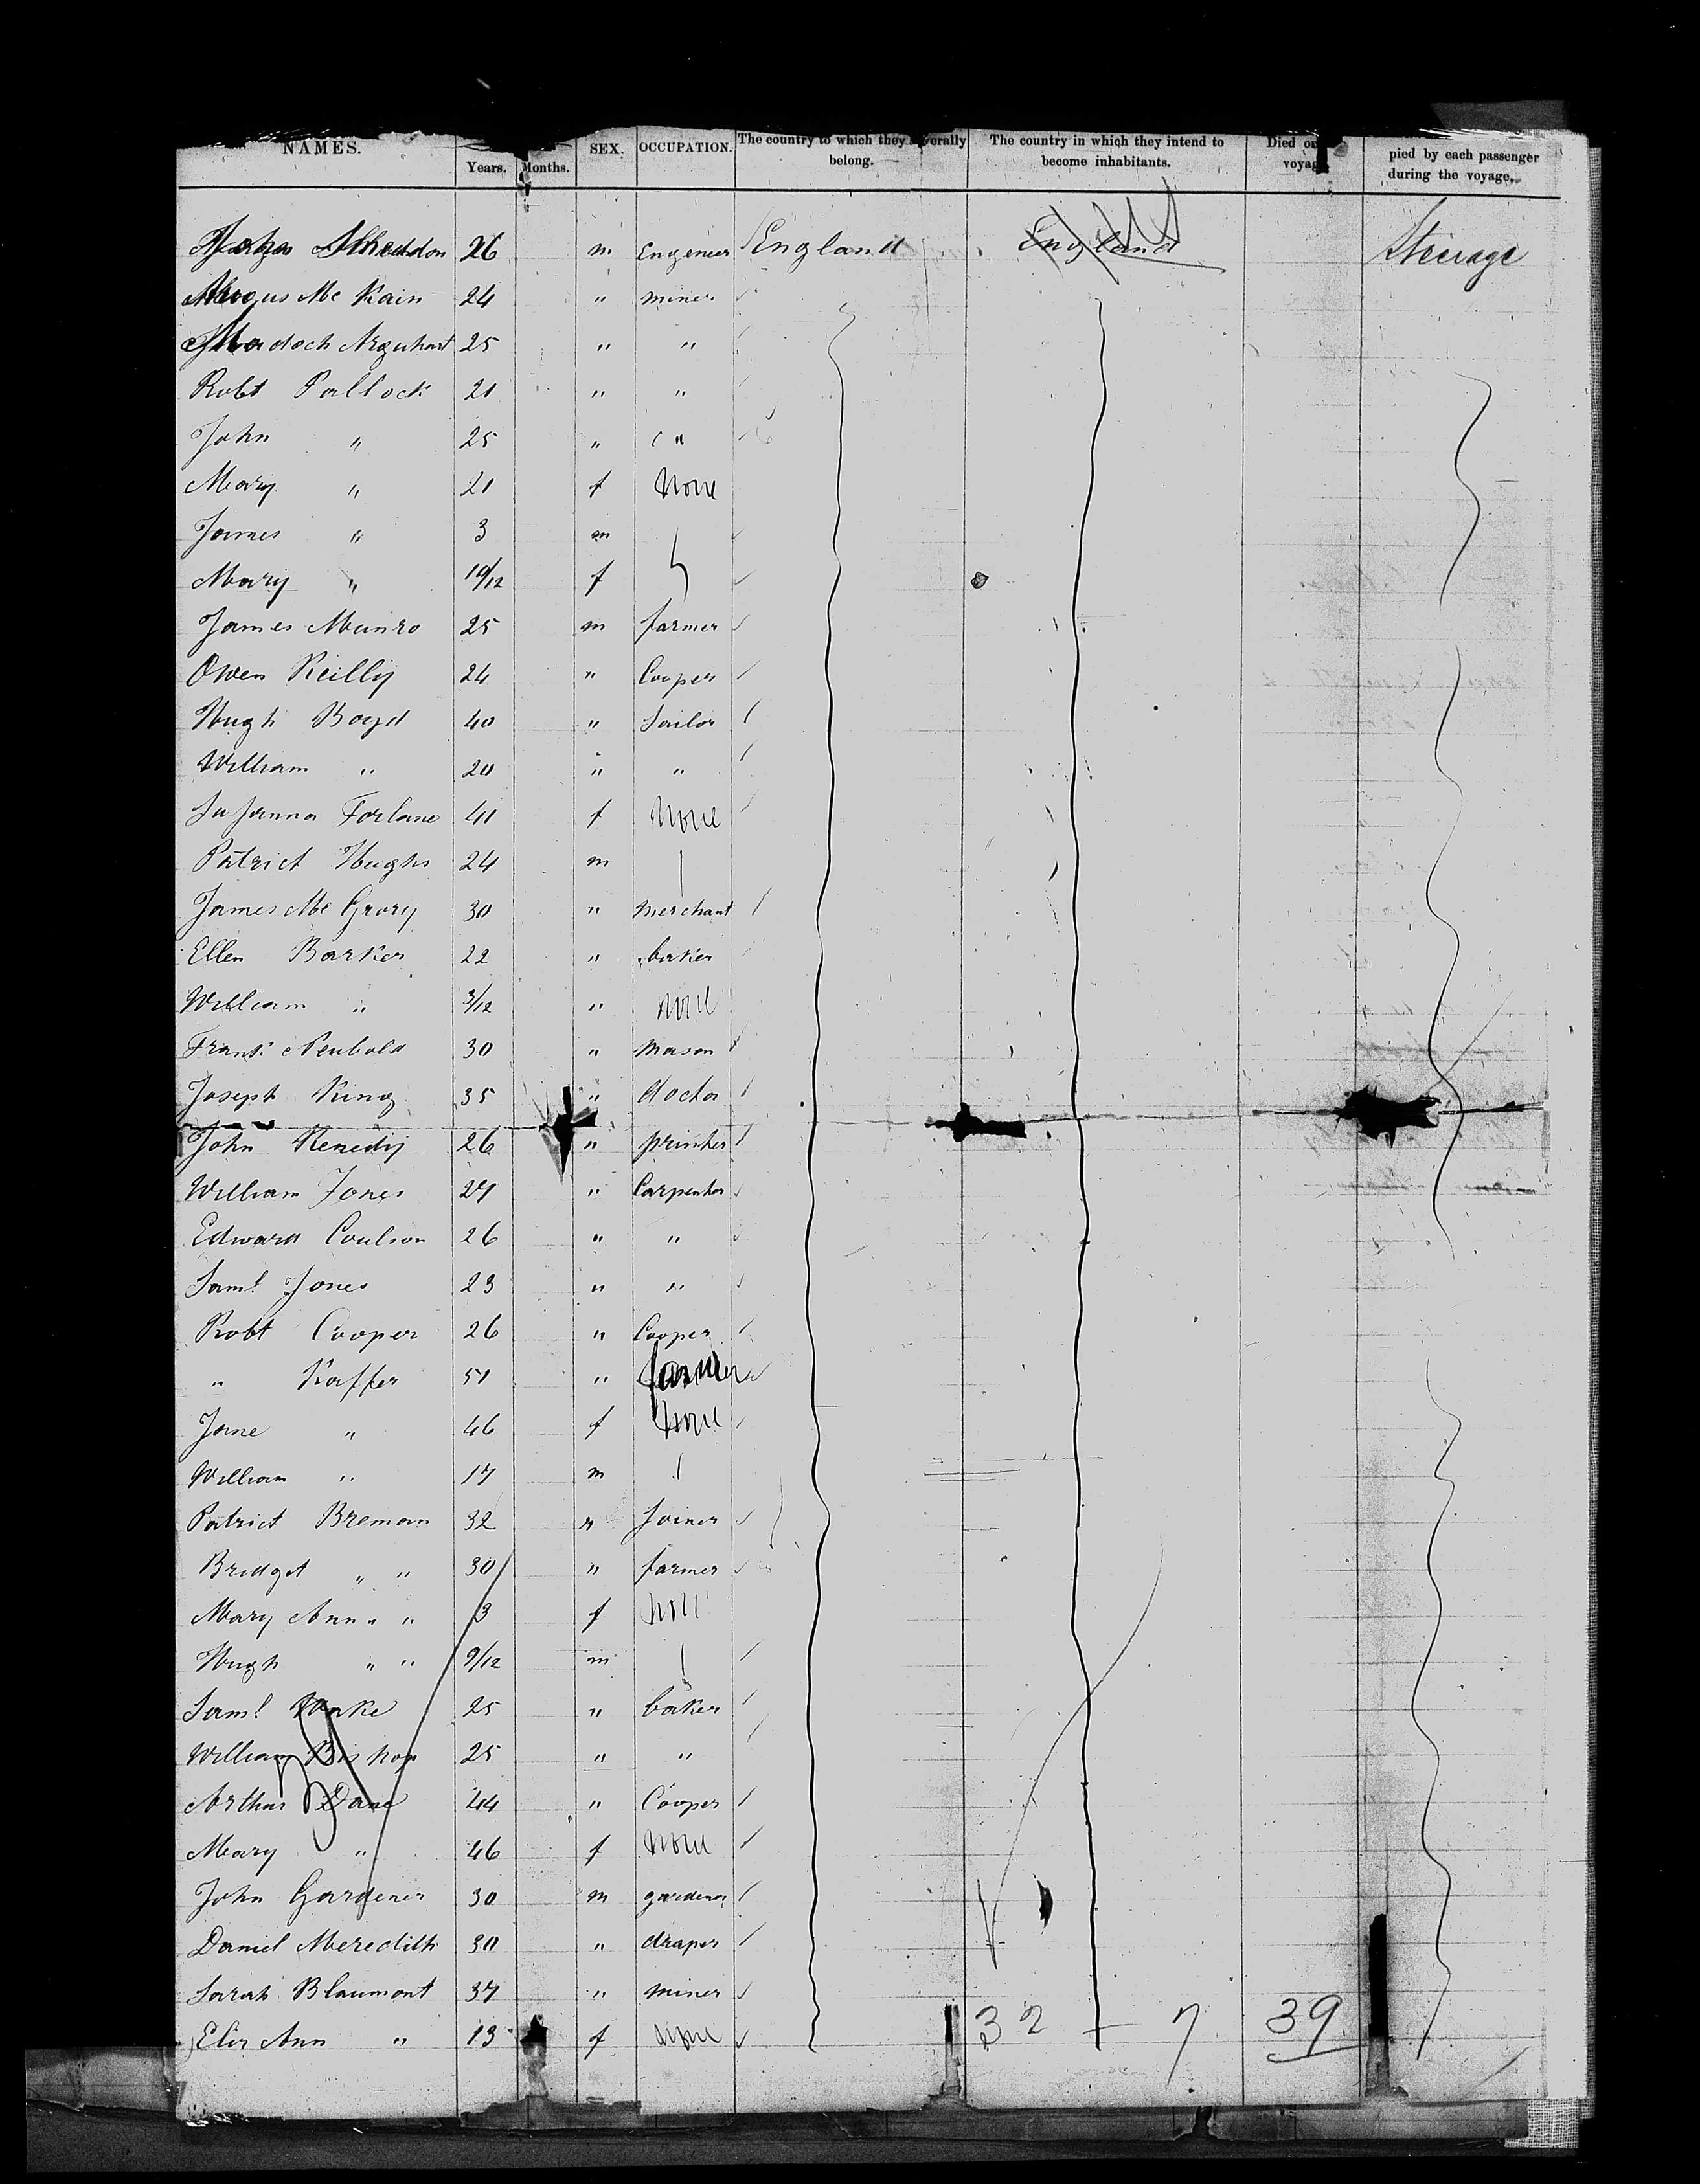 NAMES. Years. Months. SEX. OCCUPATION. The country to which they severally belong. The country in which they intend to become inhabitants. Died on voyage pied by each passenger during the voyage.
26 m Engeneer England England Steerage
Mc Kain 24 " miner
25 " "
Robt Pallock 21 " "
John " 25 " "
Mary " 21 f None
James " 3 m
Mary " 10/12 f
James Munro 25 m farmer
Owen Reilly 24 " Cooper
Hugh Boyd 40 " Sailor
William " 20 " "
Susanna Forlane 41 f None
Patrict Hughs 24 m
James Mc Grory 30 " merchant
Ellen Barker 22 " baker
William " 3/12 " None
Frank Neubold 30 " mason
Joseph King 35 " doctor
John Kenedy 26 " printer
William Jones 27 " Carpenter
Edward Coulson 26 " "
Saml Jones 23 " "
Robt Cooper 26 " Cooper
" Kaffer 51 " farmer
Jane " 46 f None
William " 17 m
Patrict Breman 32 " Joiner
Bridget " " 30 " farmer
Mary Ann " " 3 f None
Hugh " " 9/12 m
Saml 25 " baker
William Bishop 25 " "
Arthur Dane 44 " Cooper
Mary " 46 f None
John Gardener 30 m gardener
Daniel Meredith 30 " draper
Sarah Blaumont 37 " miner
Eliz Ann " 13 f None 32 - 7 39